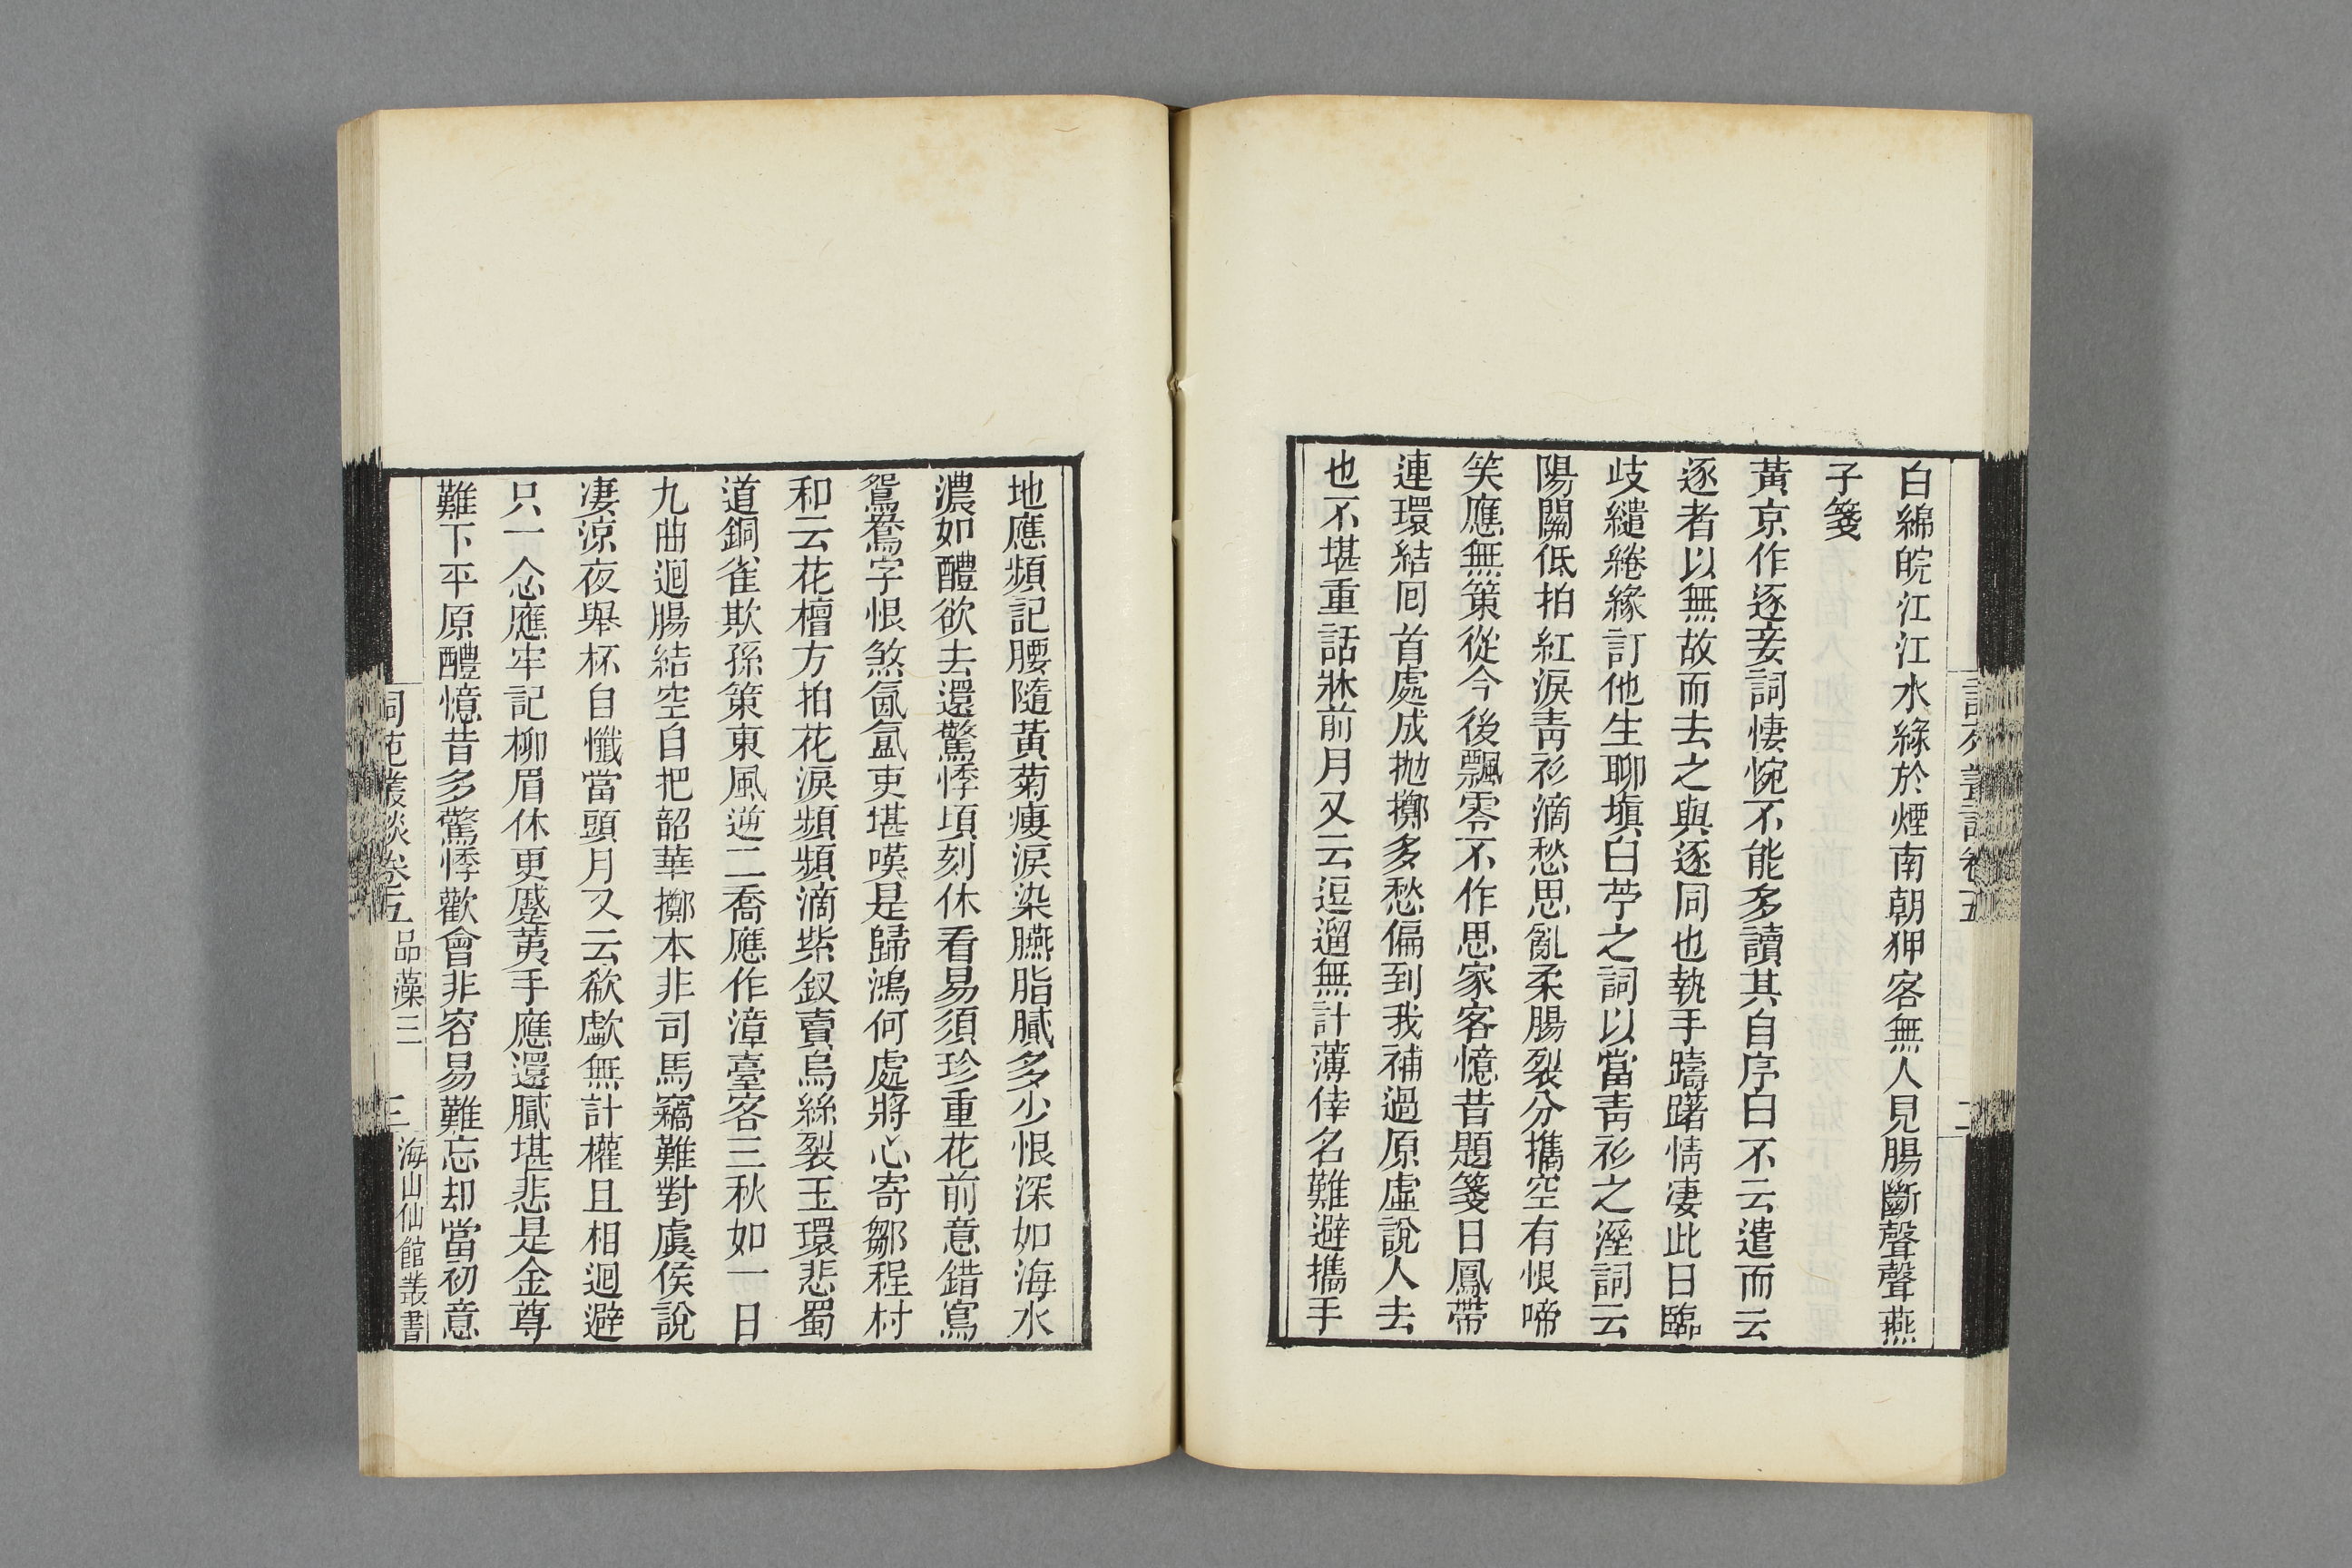 白綿皖江江水綠於煙南朝狎客無人見腸斷聲聲燕
子箋
黃京作逐妾詞悽惋不能多讀其自序曰不云遣而云
逐者以無故而去之與逐同也執手躊躇情凄此日臨
歧繾綣緣訂他生聊塡白苧之詞以當靑衫之溼詞云
陽關低拍紅淚靑衫滴愁思亂柔腸裂分攜空有恨啼
笑應無策從今後飄零不作思家客憶昔題箋日鳳帶
連環結囘首處成抛擲多愁偏到我補過原虛說人去
也不堪重話牀前月又云逗遛無計薄倖名難避攜手
地應頻記腰隨黃菊瘦淚染臙脂膩多少恨深如海水
濃如醴欲去還驚悸頃刻休看易須珍重花前意錯寫
鴛鴦字恨煞氤氳吏堪嘆是歸鴻何處將心寄鄒程村
和云花檀方拍花淚頻頻滴紫釵賣烏絲裂玉環悲蜀
道銅雀欺孫策東風逆二喬應作漳臺客三秋如一日
九曲迴腸結空自把韶華擲本非司馬竊難對虞侯說
凄涼夜舉杯自懺當頭月又云欷歔無計權且相迴避
只一念應牢記柳眉休更蹙荑手應還膩堪悲是金尊
難下平原醴憶昔多驚悸歡會非容易難忘却當初意
詞苑叢談卷五 品藻三 三 海山仙館叢書